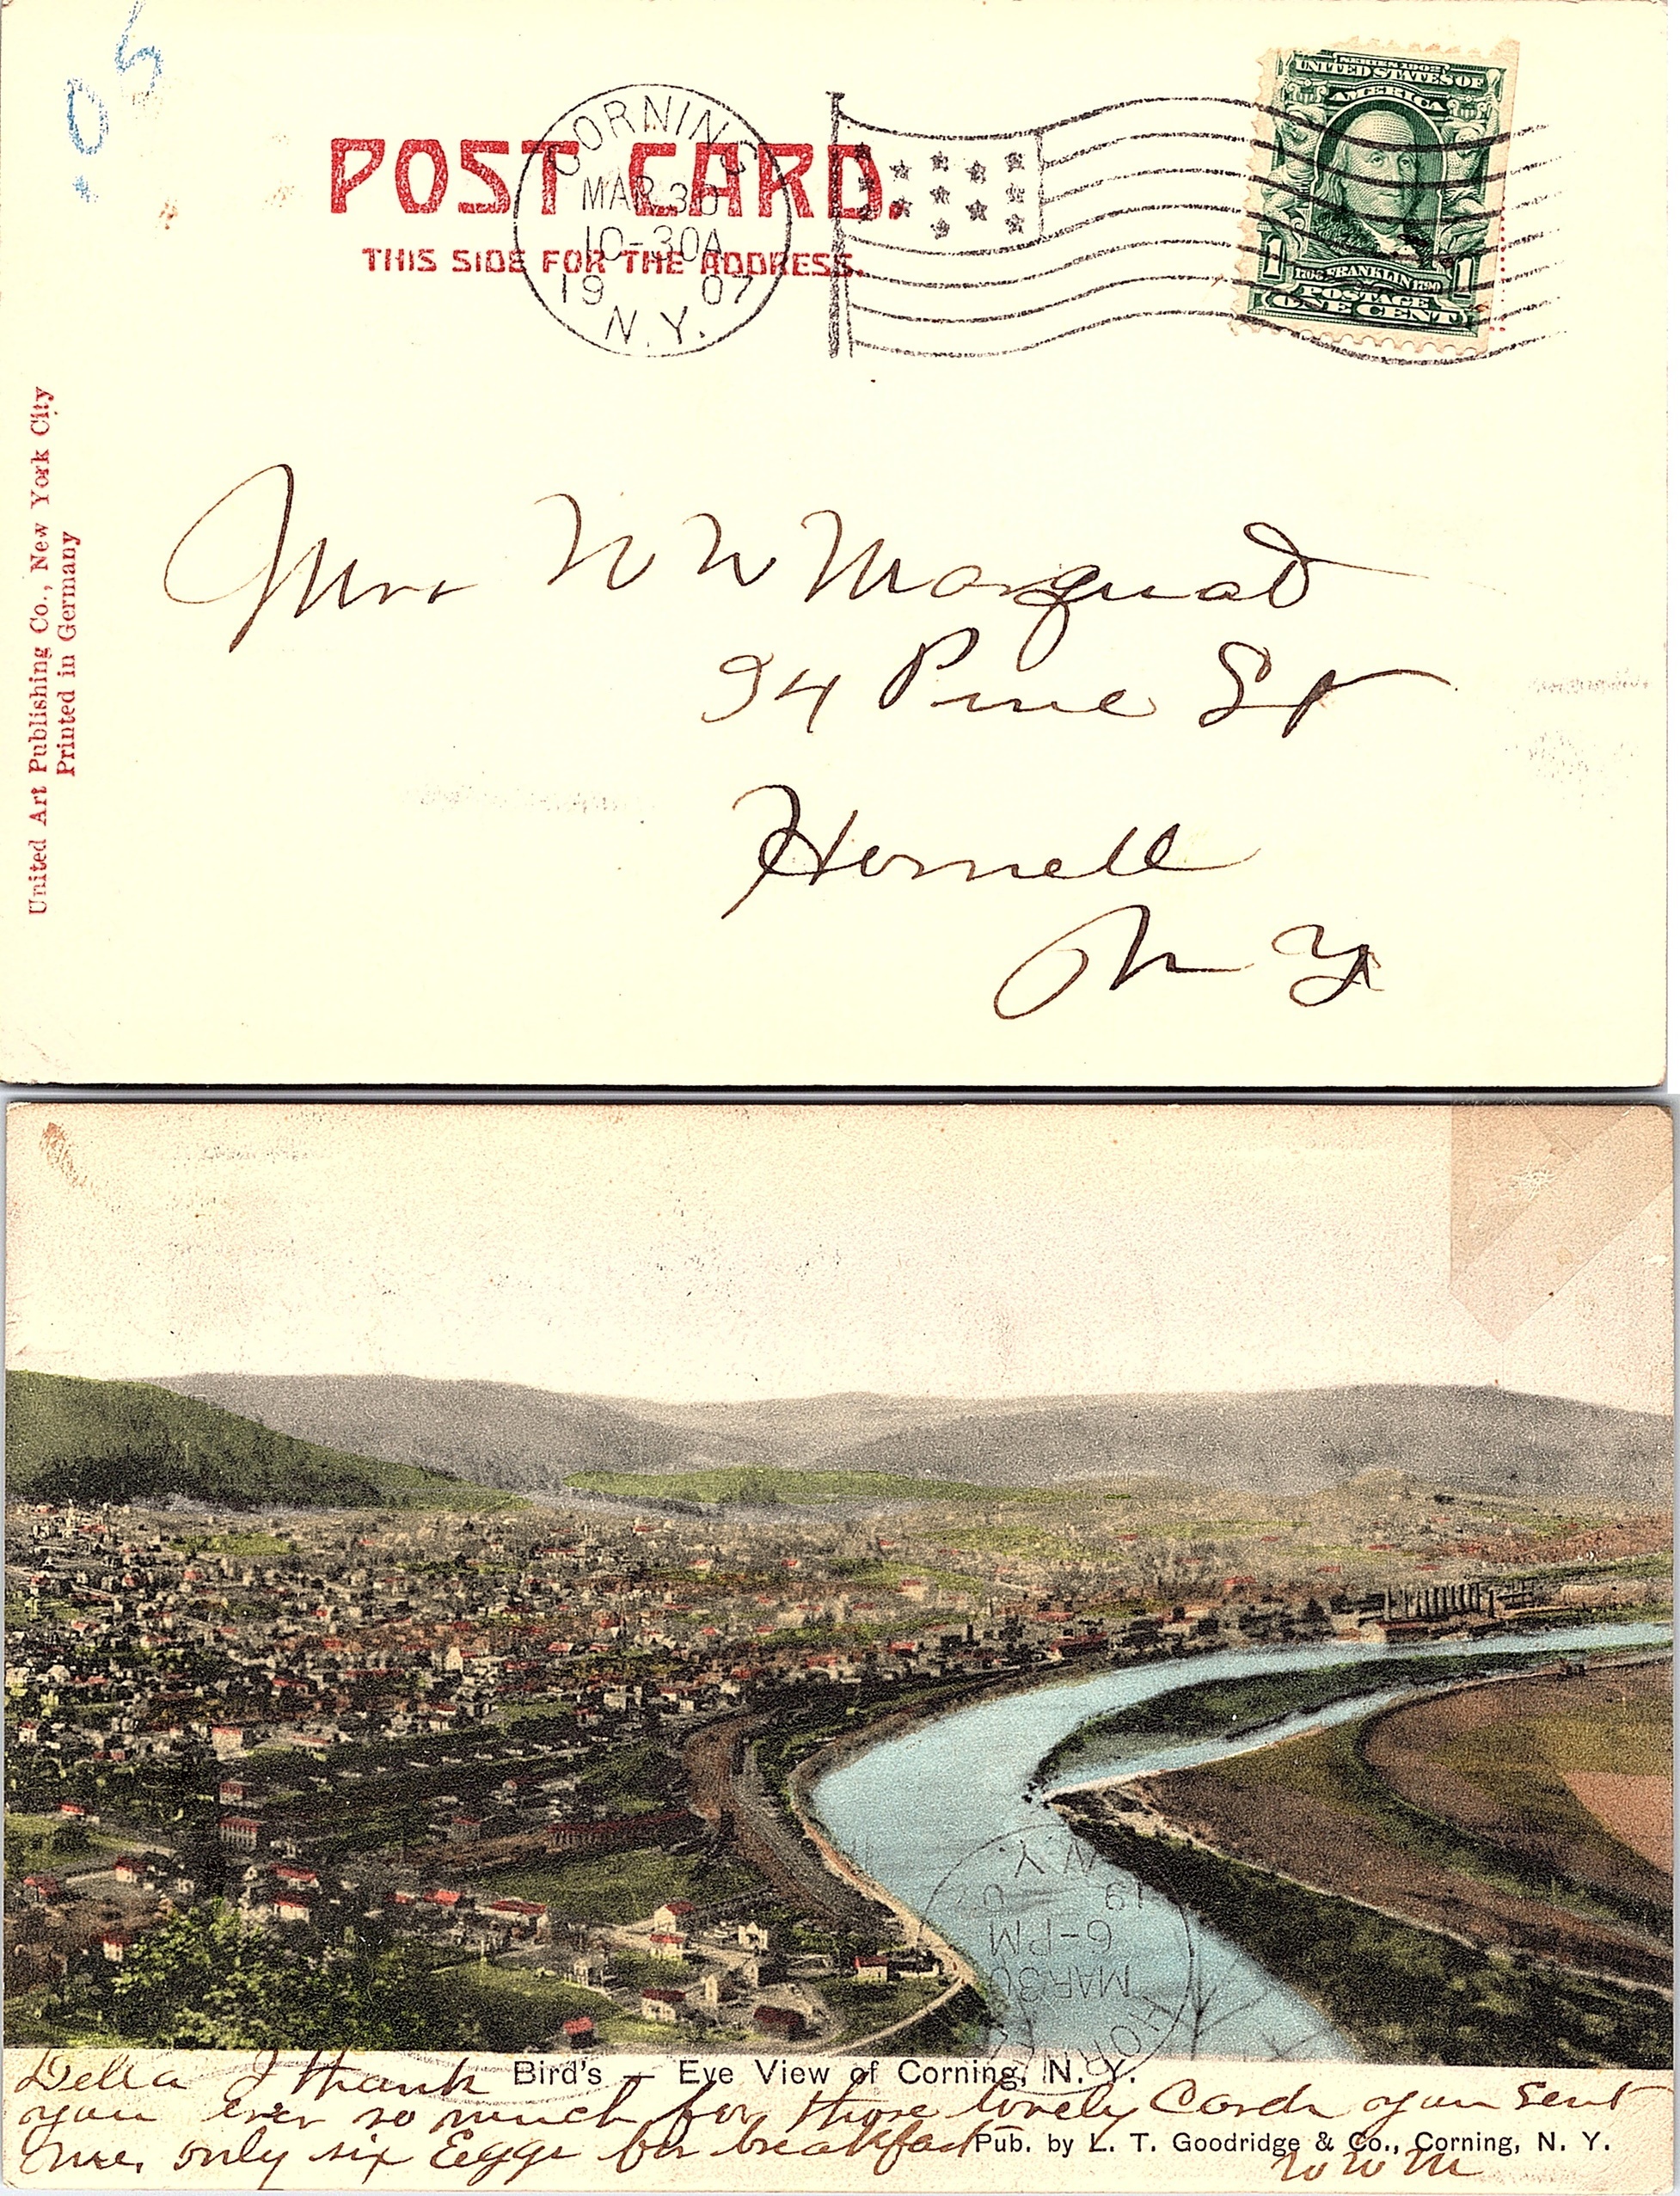 .05
POST CARD.
THIS SIDE FOR THE ADDRESS.
CORNING
MAR 30
10-30A
19 07
N.Y.
SERIES 1902
UNITED STATES OF
AMERICA
1 1
1706 FRANKLIN 1790
POSTAGE
ONE CENT
United Art Publishing Co., New York City
Printed in Germany
Mrs W W Marquat
94 Pine St
Hornell
N Y
HORNELL
MAR 30
6-PM
19 07
N.Y.
Bird's — Eye View of Corning, N. Y.
Della I thank
you ever so much for those lovely Cards you sent
me, only six Eggs for breakfast
Pub. by L. T. Goodridge & Co., Corning, N. Y.
W W M